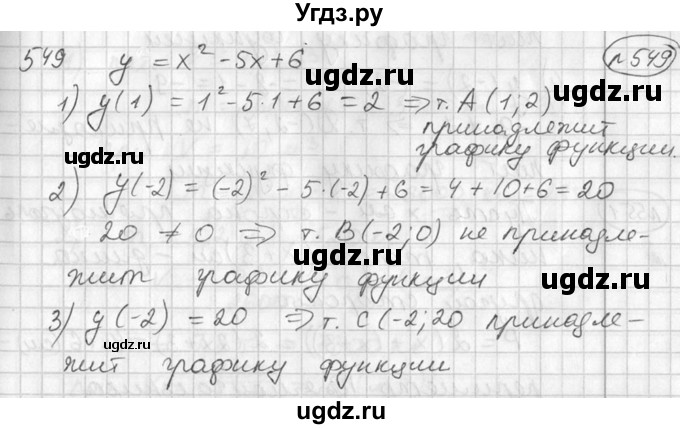 Угдз.ру
549 y = x² - 5x + 6 №549
1) y(1) = 1² - 5·1 + 6 = 2 ⇒ т. A (1; 2)
принадлежит
графику функции.
2) y(-2) = (-2)² - 5·(-2) + 6 = 4 + 10 + 6 = 20
20 ≠ 0 ⇒ т. B(-2; 0) не принадле-
жит графику функции
3) y(-2) = 20 ⇒ т. C(-2; 20 принадле-
жит графику функции
ugdz.ru
ugdz.ru
ugdz.ru
ugdz.ru
ugdz.ru
ugdz.ru
ugdz.ru
ugdz.ru
ugdz.ru